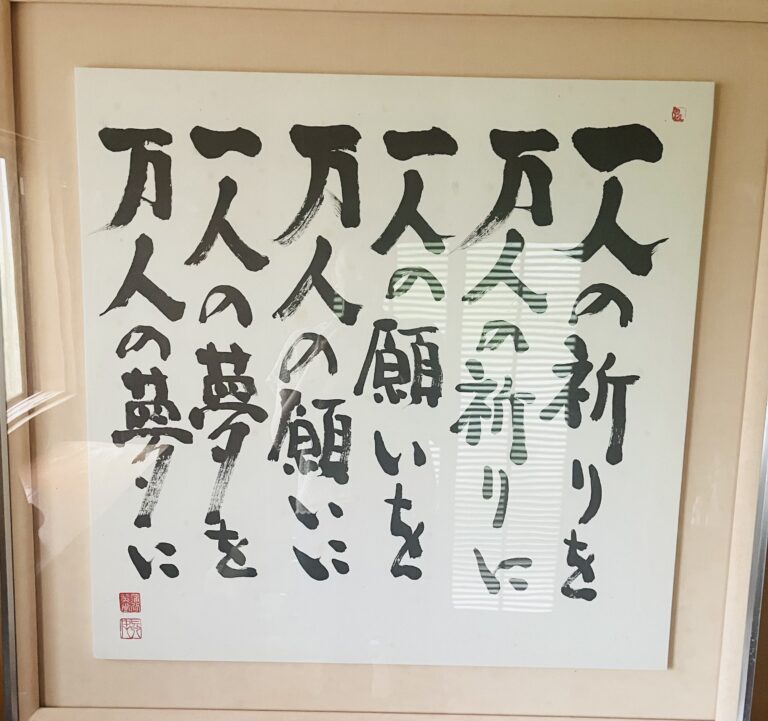 一人の祈りを
万人の祈りに
一人の願いを
万人の願いに
一人の夢を
万人の夢に